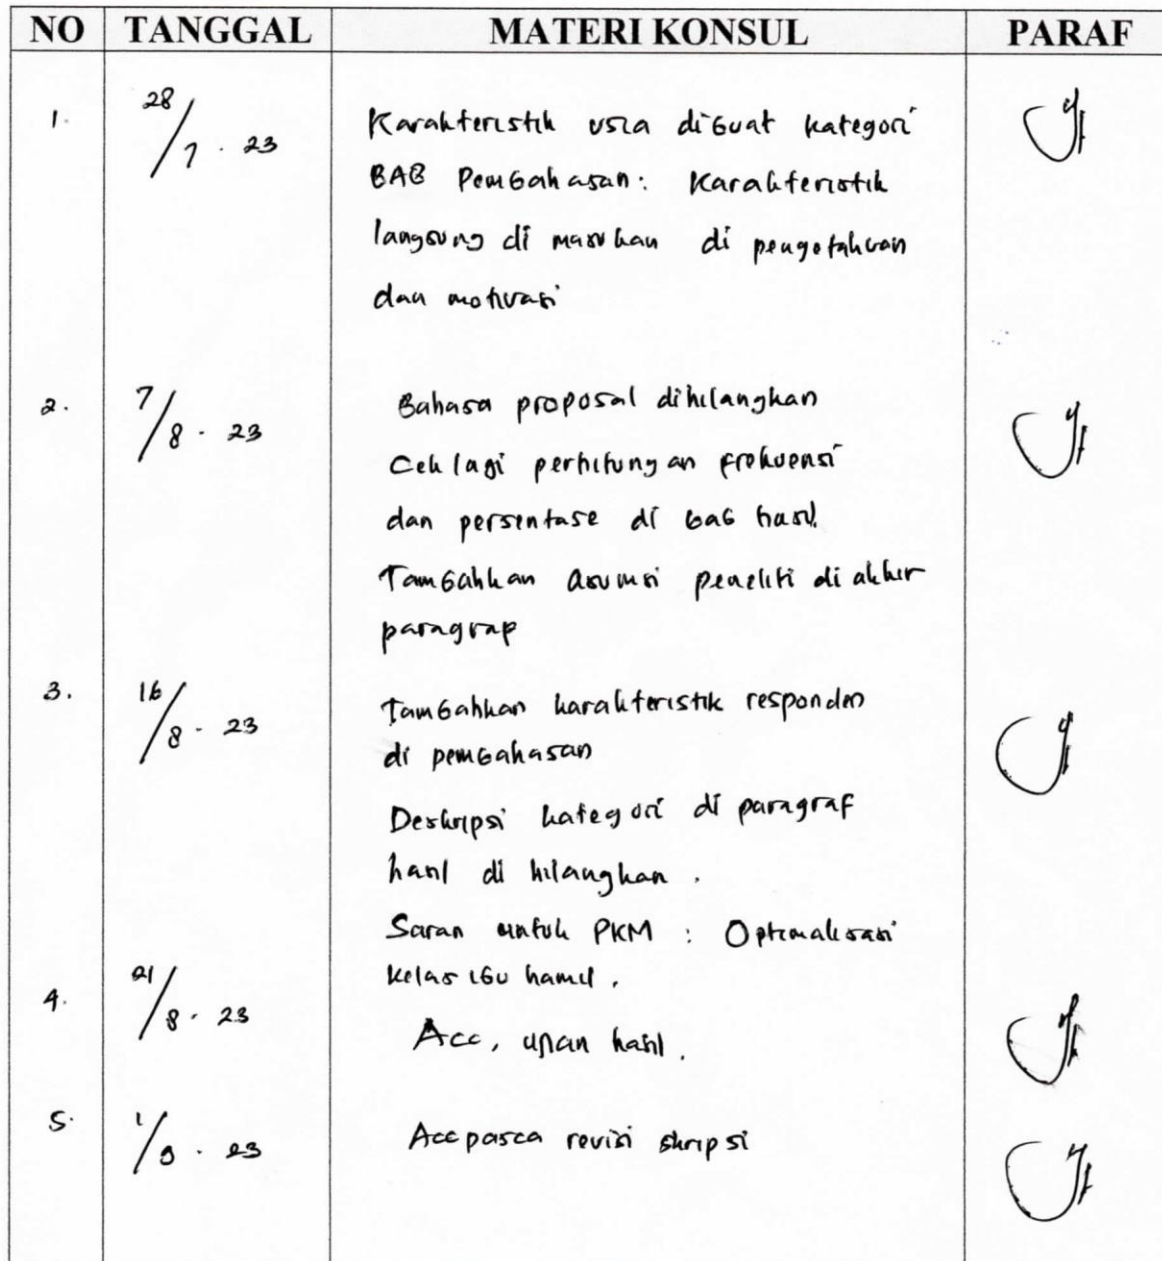 NO TANGGAL MATERI KONSUL PARAF
1. 28/7 . 23 Karakteristik usia dibuat kategori
BAB Pembahasan: Karakteristik
langsung di masukan di pengetahuan
dan motivasi
2. 7/8 . 23 Bahasa proposal dihilangkan
Cek lagi perhitungan frekuensi
dan persentase di bab hasil.
Tambahkan asumsi peneliti di akhir
paragrap
3. 16/8 . 23 Tambahkan karakteristik responden
di pembahasan
Deskripsi kategori di paragraf
hasil di hilangkan .
Saran untuk PKM : Optimalisasi
kelas ibu hamil .
4. 21/8 . 23 Acc, ujian hasil .
5. 1/9 . 23 Acc pasca revisi skripsi